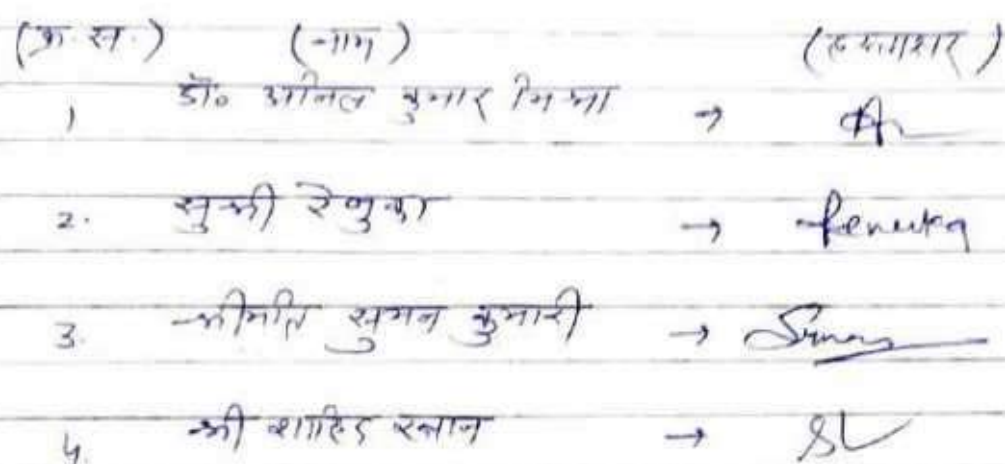 (क्र. स.) (नाम) (हस्ताक्षर)
1 डॉ० अनिल कुमार मिश्रा →
2. सुश्री रेणुका → Renuka
3. श्रीमति सुमन कुमारी → Suman
4. श्री शाहिद खान →